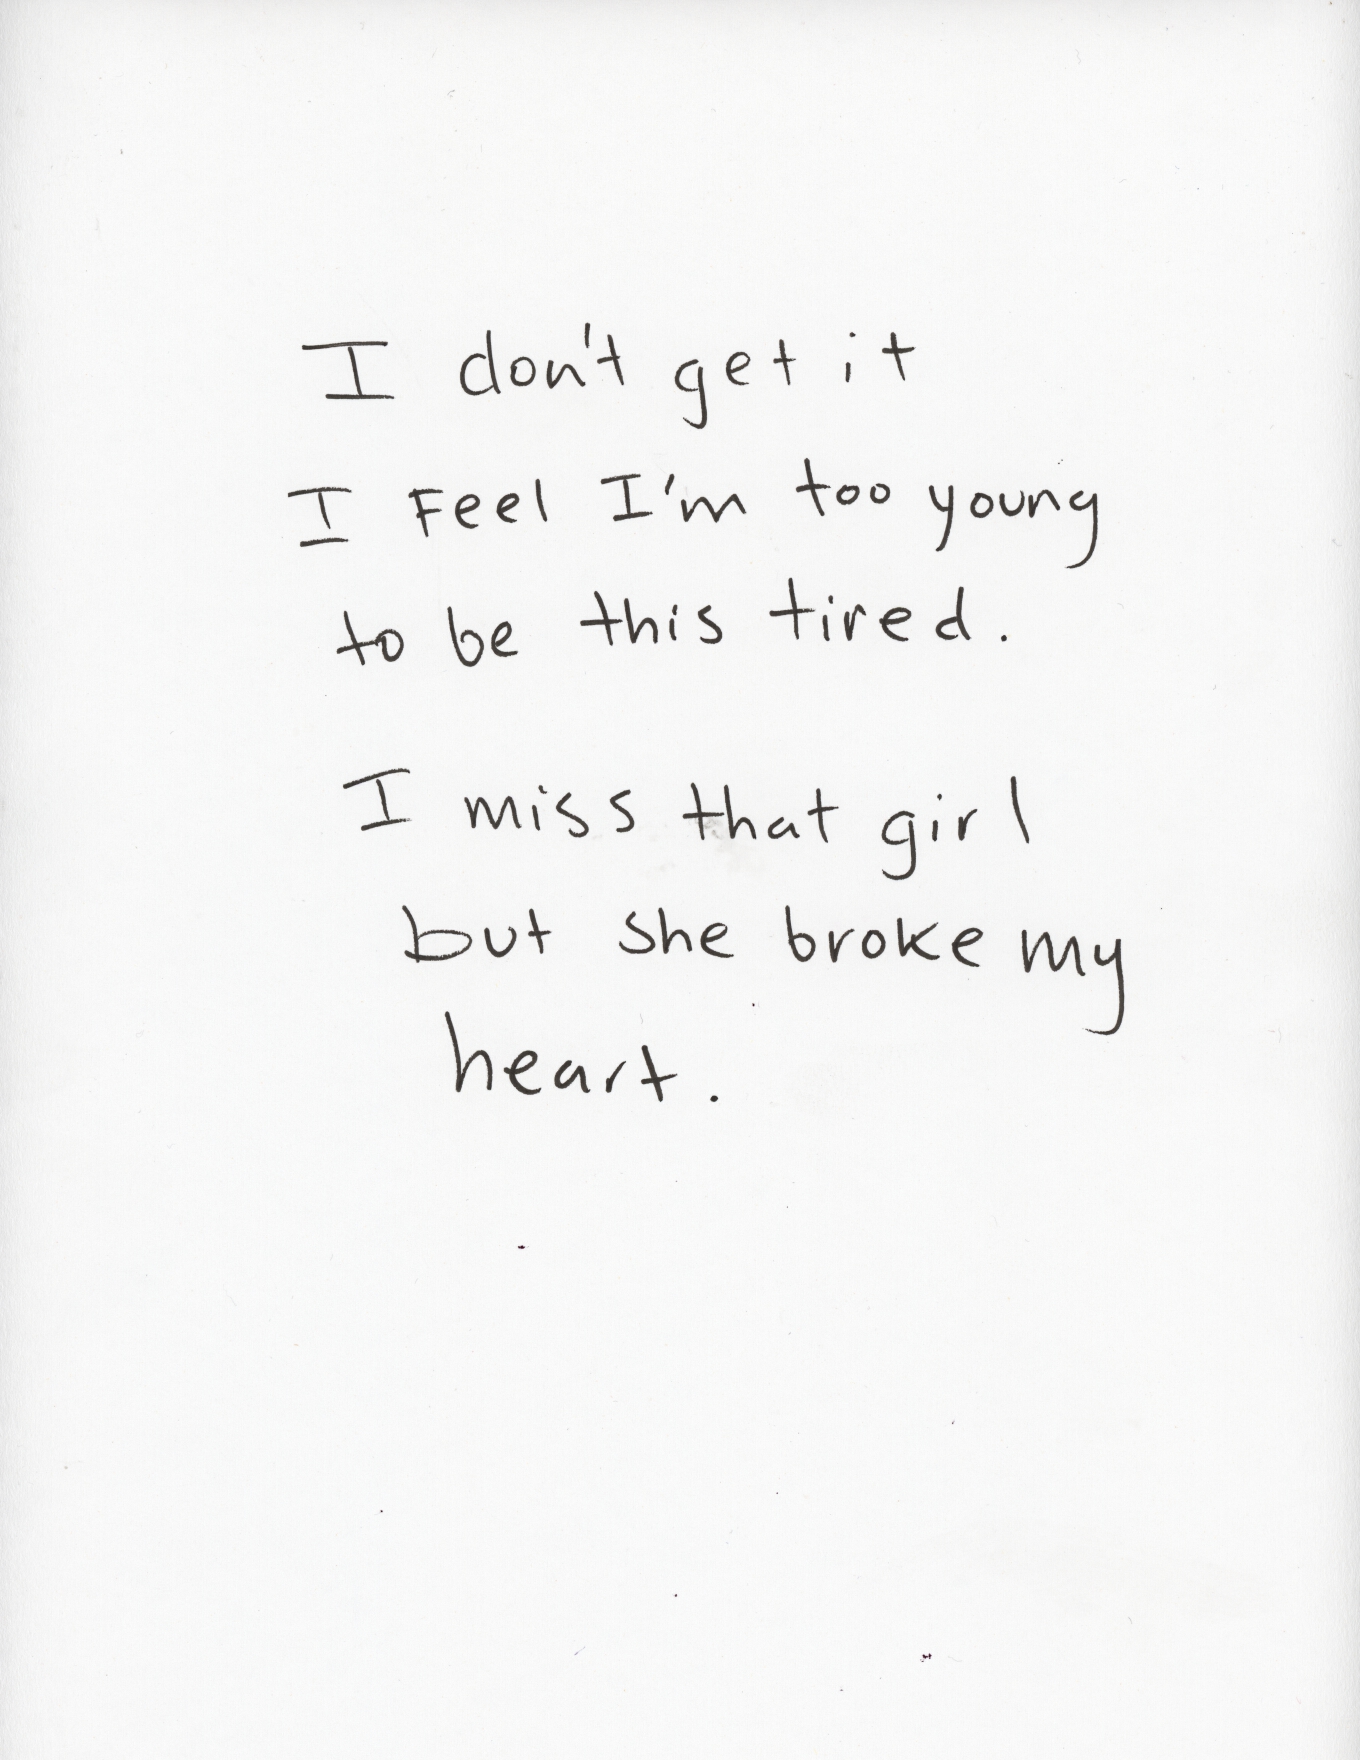 I don't get it
I Feel I'm too young
to be this tired.
I miss that girl
but she broke my
heart.